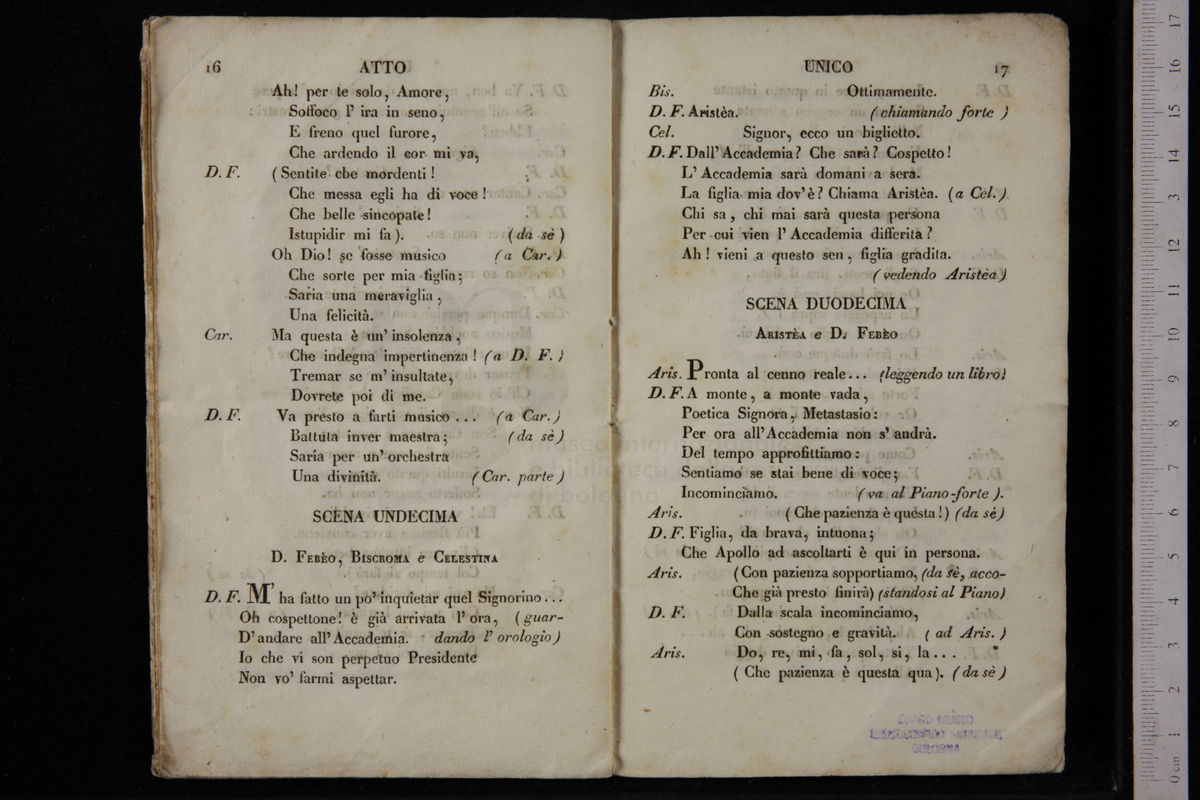 16 ATTO
Ah! per te solo, Amore,
Soffoco l' ira in seno,
E freno quel furore,
Che ardendo il cor mi va,
D. F. (Sentite che mordenti!
Che messa egli ha di voce!
Che belle sincopate!
Istupidir mi fa). (da sè)
Oh Dio! se fosse musico (a Car.)
Che sorte per mia figlia;
Saria una meraviglia,
Una felicità.
Car. Ma questa è un' insolenza,
Che indegna impertinenza! (a D. F.)
Tremar se m' insultate,
Dovrete poi di me.
D. F. Va presto a farti musico... (a Car.)
Battuta inver maestra; (da sè)
Saria per un' orchestra
Una divinità. (Car. parte)
SCENA UNDECIMA
D. FEBÈO, BISCROMA e CELESTINA
D. F. M' ha fatto un po' inquietar quel Signorino...
Oh cospettone! è già arrivata l' ora, (guar-
D' andare all' Accademia. dando l' orologio)
Io che vi son perpetuo Presidente
Non vo' farmi aspettar.
UNICO 17
Bis. Ottimamente.
D. F. Aristèa. (chiamando forte)
Cel. Signor, ecco un biglietto.
D. F. Dall' Accademia? Che sarà? Cospetto!
L' Accademia sarà domani a sera.
La figlia mia dov' è? Chiama Aristèa. (a Cel.)
Chi sa, chi mai sarà questa persona
Per cui vien l' Accademia differita?
Ah! vieni a questo sen, figlia gradita.
(vedendo Aristèa)
SCENA DUODECIMA
ARISTÈA e D. FEBÈO
Aris. Pronta al cenno reale... (leggendo un libro)
D. F. A monte, a monte vada,
Poetica Signora, Metastasio:
Per ora all' Accademia non s' andrà.
Del tempo approfittiamo:
Sentiamo se stai bene di voce;
Incominciamo. (va al Piano-forte).
Aris. (Che pazienza è questa!) (da sè)
D. F. Figlia, da brava, intuona;
Che Apollo ad ascoltarti è qui in persona.
Aris. (Con pazienza sopportiamo, (da sè, acco-
Che già presto finirà) (standosi al Piano)
D. F. Dalla scala incominciamo,
Con sostegno e gravità. (ad Aris.)
Aris. Do, re, mi, fa, sol, si, la...
(Che pazienza è questa qua). (da sè)
CIVICO MUSEO
BIBLIOGRAFICO MUSICALE
BOLOGNA